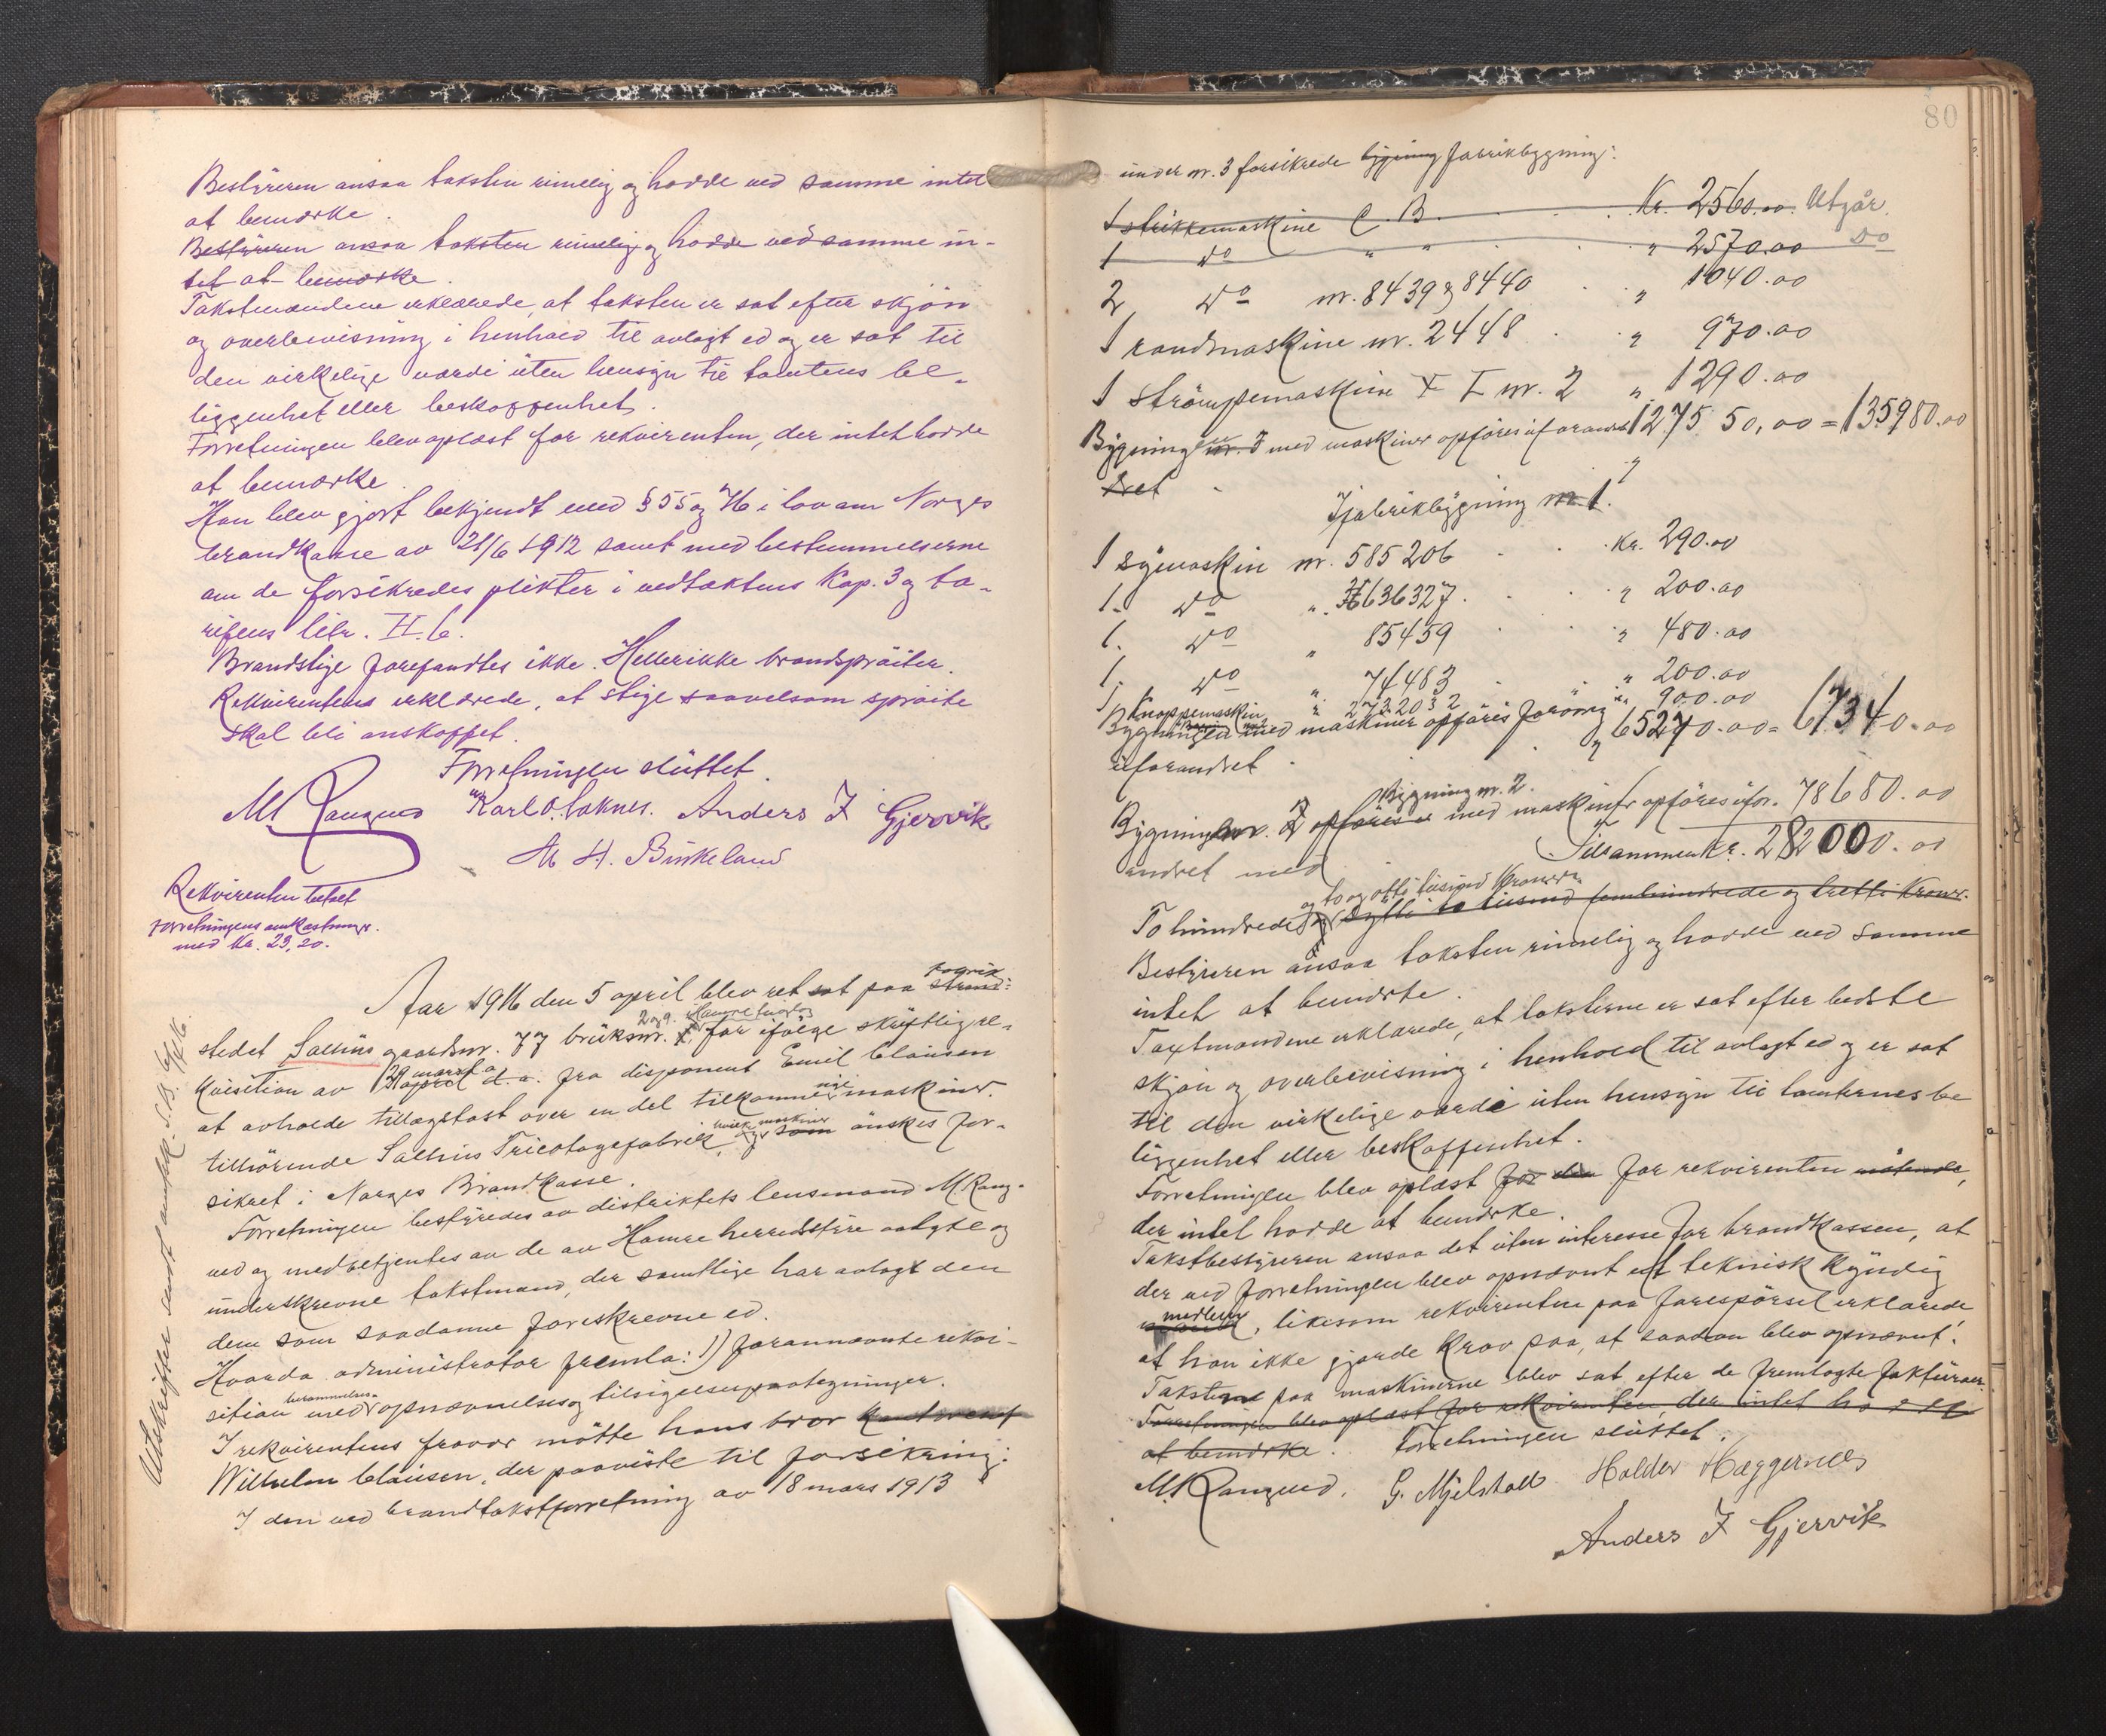 Bestyreren ansaa taksten rimelig og hadde ved samme intet
at bemærke.
Bestyreren ansaa taksten rimelig og hadde ved samme in-
tet at bemærke.
Takstmændene erklærede, at taksten er sat efter skjøn
og overbevisning i henhold til avlagt ed og er sat til
den virkelige værdi uten hensyn til tomtens be-
liggenhet eller beskaffenhet.
Forretningen blev oplæst for rekvirenten, der intet hadde
at bemærke.
Han blev gjort bekjendt med § 55 og 76 i lov om Norges
brandkasse av 21/6 1912 samt med bestemmelserne
om de forsikredes plikter i vedtæktens Kap. 3 og ta-
rifens litr. H. 6.
Brandstige forefandtes ikke. Heller ikke brandsprøiter.
Rekvirenten erklærede, at stige saavelsom sprøite
skal bli anskaffet.
Forretningen sluttet.
M Rangned Karl O. Saknes. Anders J Gjervik
M H. Birkeland
Rekvirenten betalt
forretningens omkostninger
med Kr. 29,20.
Utskrifter sendt
Aar 1916 den 5 april blev ret sat paa fabrik strand-
2 og 9. i Hamre herred
stedet Salhus gaardsnr. 77 bruksnr. for ifølge skriftlig re-
29 marts
kvisition av 3 april d.a. fra disponent Emil Clausen
at avholde tillægstakst over en del tilkomne nye maskiner.
tilhørende Salhus Tricotagefabrik, og som ønskes for-
sikret i Norges Brandkasse.
Forretningen bestyredes av distriktets lensmand M. Rang-
ned og medbetjentes av de av Hamre herredsstyre valgte og
underskrevne takstmænd, der samtlige har avlagt den
dem som saadanne foreskrevne ed.
Hvorda administrator fremla: 1) forannævnte rekvi-
berammelses-
sition med opnævnelses og tilsigelsespaategninger.
I rekvirentens fravær møtte hans bror
Wilhelm Clausen, der paaviste til forsikring:
I den ved brandtakstforretning av 18 mars 1913
80
under nr. 3 forsikrede bygning fabrikbygning:
1 strikkemaskine C. B. Kr. 2560.00. Utgår.
1 do " " " 2570.00 Do
2 do nr. 8439 & 8440 " 1040.00
1 randmaskine nr. 2448 " 970.00
1 Strømpemaskine F I nr. 2 " 1290.00
Bygningen nr. 3 med maskiner opføres uforand- 127550,00 = 135980.00
ret
I fabrikbygning nr 1.
1 symaskin nr. 585206 Kr. 290.00
1. do " H636327. " 200.00
1. do " 85459 " 480.00
1. do " 74483 " 200.00
1 Knappemaskin " 2732032 " 900.00
Bygningen med maskiner opføres forøvrig " 65270.00 = 67340.00
uforandret.
Bygning nr. 2.
Bygning nr. 2 opføres med maskiner opføres ufor- 78680.00
andret med Tilsammen Kr. 282000.00
og to og otti tusind Kroner
To hundrede femhundrede og tretti Kroner.
Bestyreren ansaa taksten rimelig og hadde ved samme
intet at bemærke.
Taxtmændene erklærede, at taksterne er sat efter bedste
skjøn og overbevisning i henhold til avlagt ed og er sat
til den virkelige værdi uten hensyn til tomternes be
liggenhet eller beskaffenhet.
Forretningen blev oplæst for den for rekvirenten møtende,
der intet hadde at bemærke.
Takstbestyreren ansaa det uten interesse for brandkassen, at
der ved forretningen blev opnævnt et teknisk kyndig
medlem, likesom rekvirenten paa forespørsel erklærede
at han ikke gjorde Krav paa, at saadan blev opnævnt.
Taksten paa maskinerne blev sat efter de fremlagte fakturaer.
Forretningen blev oplæst for rekvirenten, der intet hadde
at bemærke. Forretningen sluttet.
M. Rangned. G. Mjelstad Halder Hæggernes
Anders J Gjervik